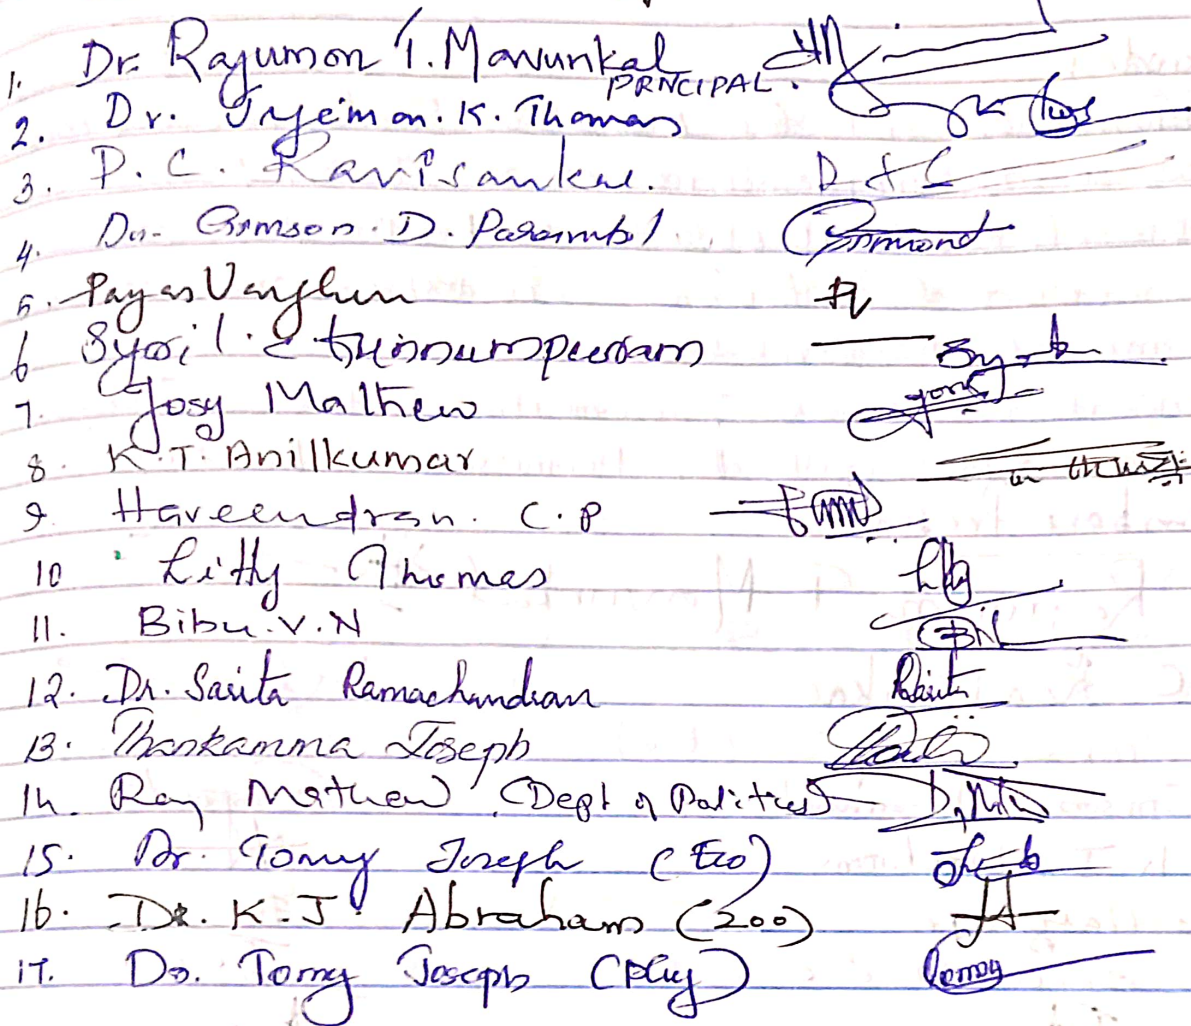 1. Dr. Rajumon T. Mavunkal
PRNCIPAL.
2. Dr. K. Thomas
3. P. C. Ravisankar.
4. Dr. Gimson. D. Parambil
5. Payas
6 Syril.
7. Josy Mathew
8. K.T. Anilkumar
9. Haveendran. C.P
10 Litty Thomas
11. Bibu.V.N
12. Dr. Sarita Ramachandran
13. Thankamma Joseph
14. Roy Mathew (Dept of Politics)
15. Dr. Tomy Joseph (Eco)
16. Dr. K.J. Abraham (Zoo)
17. Dr. Tomy Joseph (Phy)